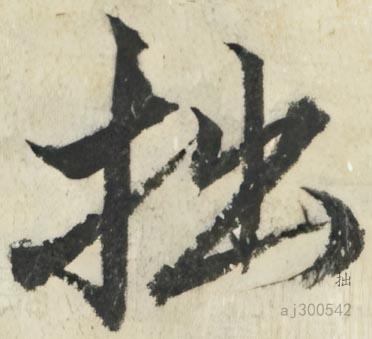 拙
拙
aj300542